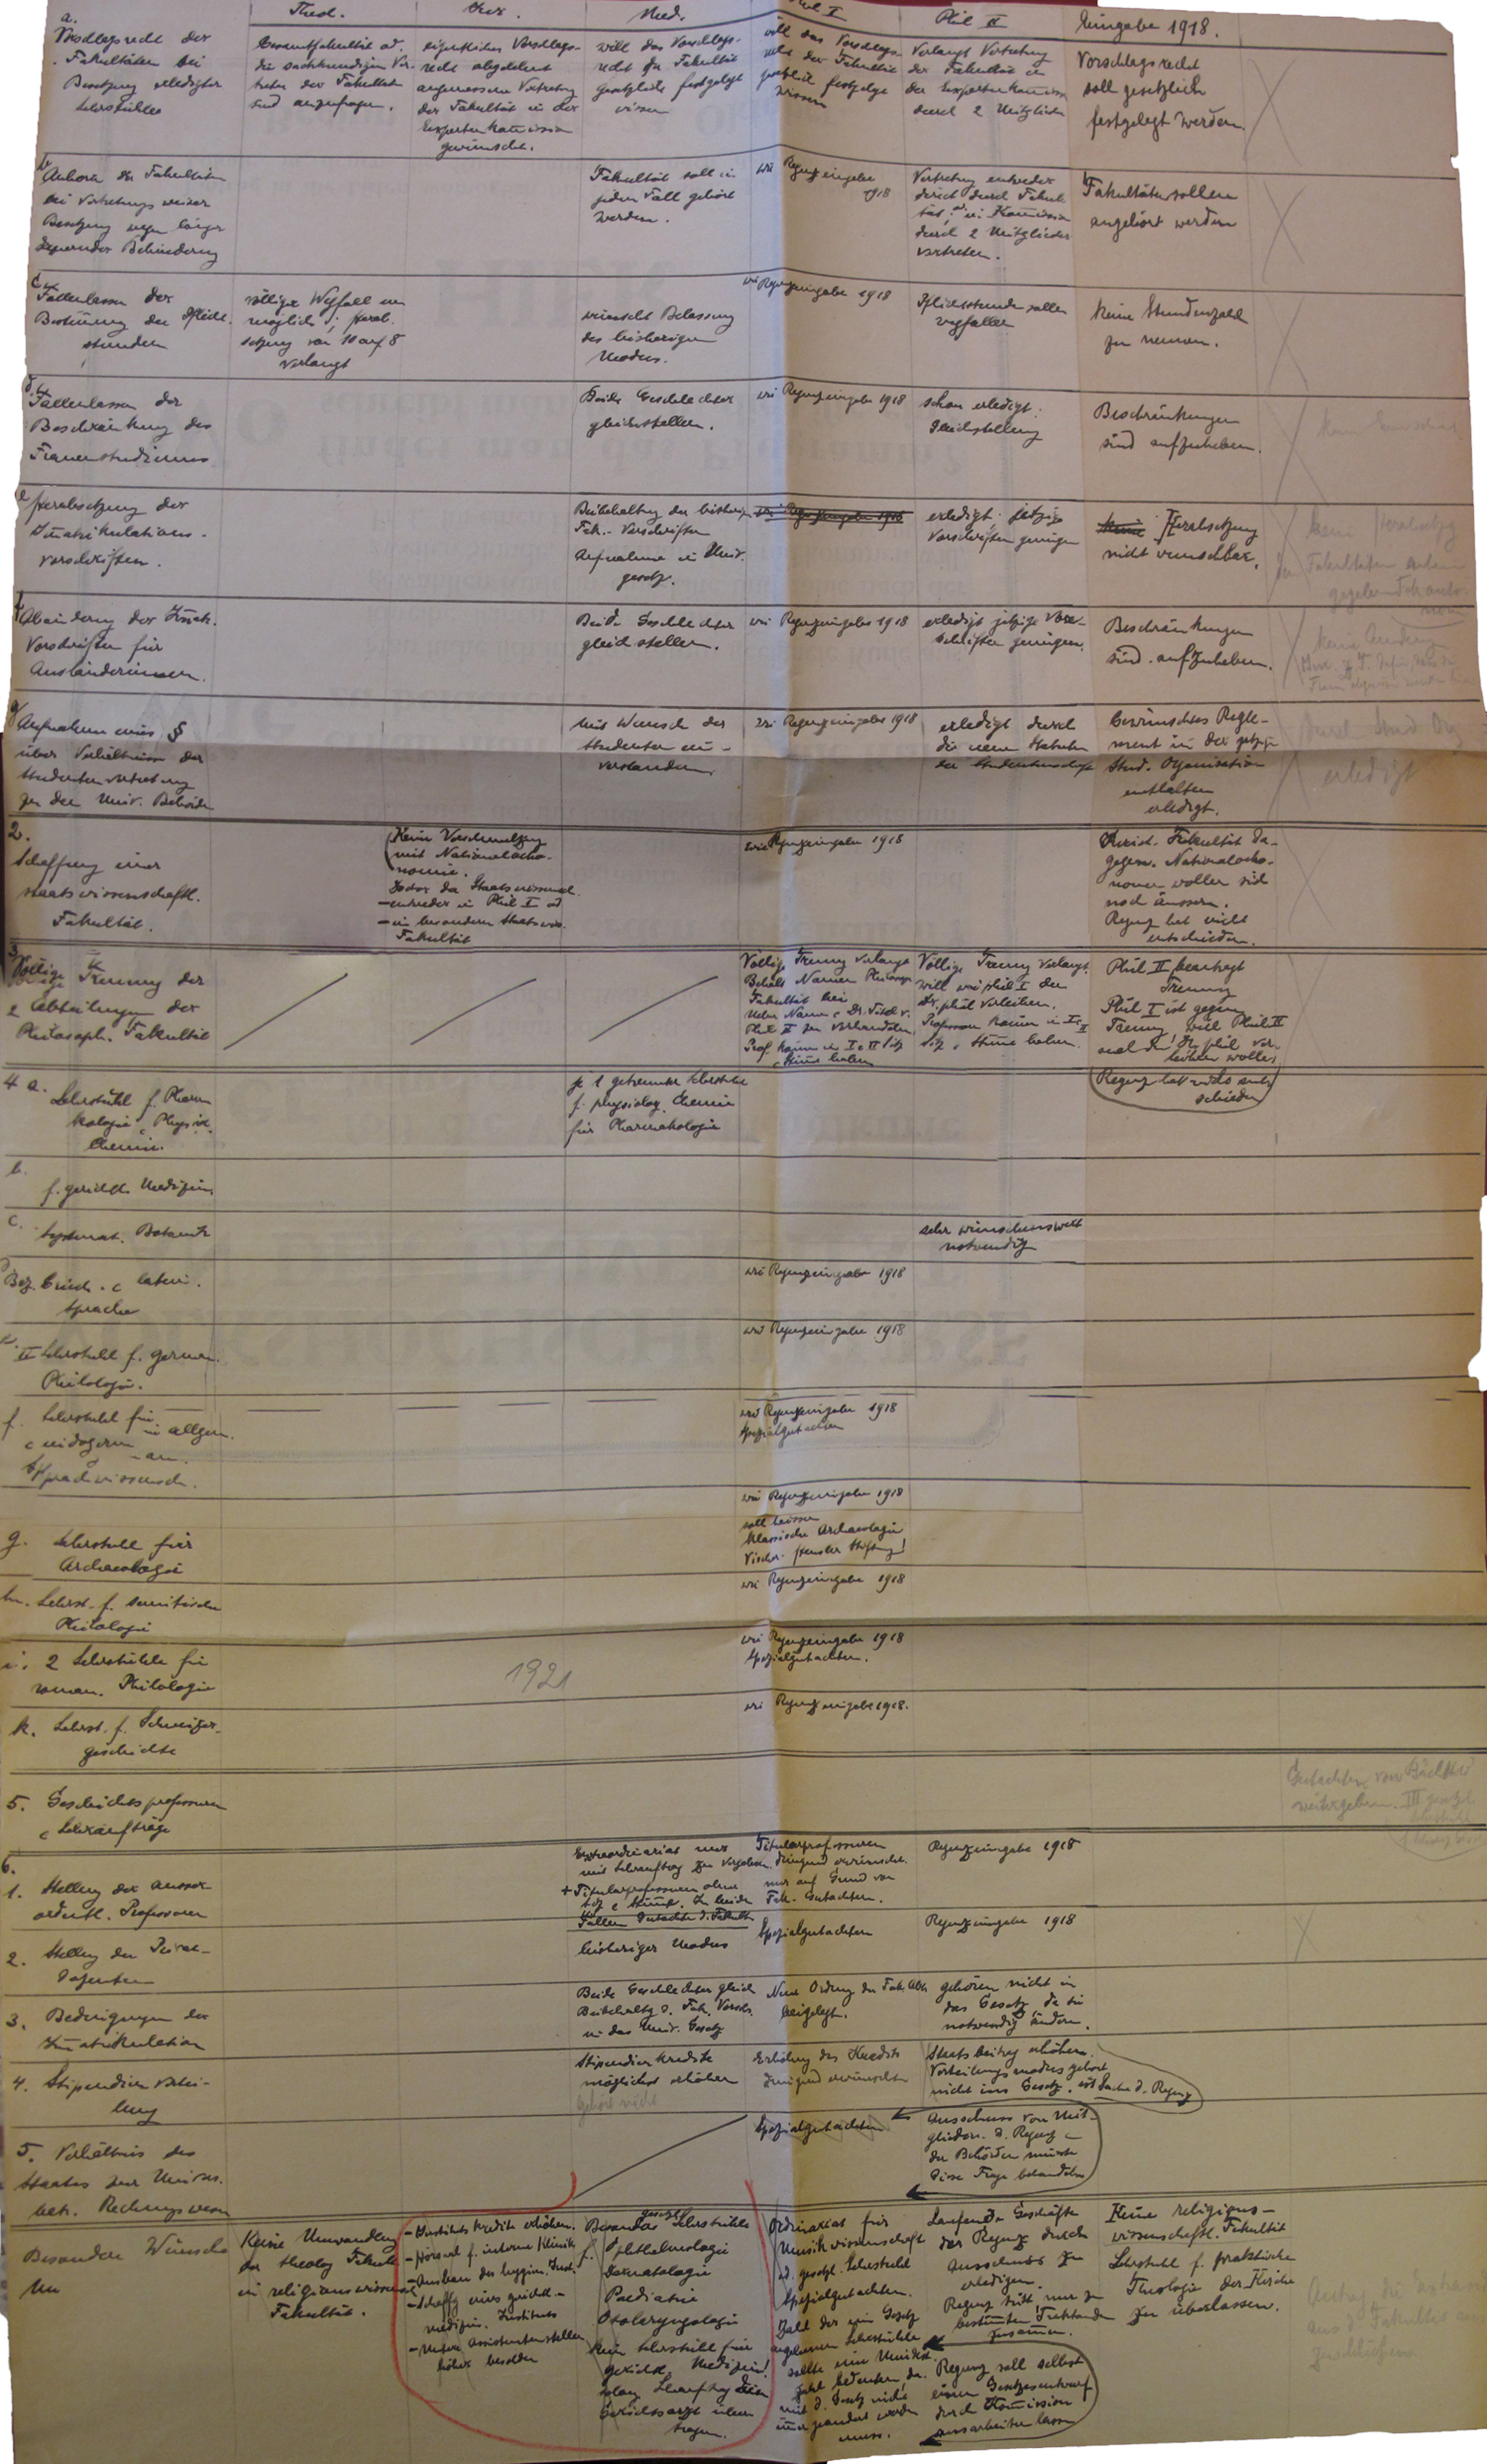 Theol.
Jur.
Med.
Phil I
Phil II
Eingabe 1918.
a.
Vorschlagsrecht der
Fakultäten bei
Besetzung erledigter
Lehrstühle
Gesamtfakultät od.
die sachkundigen Ver-
treter der Fakultät
sind anzufragen.
eigentliches Vorschlags-
recht abgelehnt
angemessene Vertretung
der Fakultät in der
Expertenkommission
gewünscht.
will das Vorschlags-
recht der Fakultät
gesetzlich festgelegt
wissen
will das Vorschlags-
recht der Fakultät
gesetzlich festgelegt
wissen
Verlangt Vertretung
der Fakultät in
der Expertenkommission
durch 2 Mitglieder
Vorschlagsrecht
soll gesetzlich
festgelegt werden.
b
Anhören der Fakultäten
bei vertretungsweiser
Besetzung wegen länger
dauernder Behinderung
Fakultät soll in
jedem Fall gehört
werden.
wie Regenzeingabe
1918
Vertretung entweder
direkt durch Fakul-
tät, od in Kommission
durch 2 Mitglieder
vertreten.
Fakultäten sollen
angehört werden
c.
Fallenlassen der
Bestimmung der Pflicht-
stunden
völliger Wegfall un
möglich; Herab-
setzung von 10 auf 8
verlangt
wünscht Belassung
des bisherigen
Modus.
wie Regenzeingabe 1918
Pflichtstunden sollen
wegfallen
keine Stundenzahl
zu nennen.
d.
Fallenlassen der
Beschränkung des
Frauenstudiums
Beide Geschlechter
gleichstellen.
wie Regenzeingabe 1918
schon erledigt:
Gleichstellung
Beschränkungen
sind aufzuheben.
e
Herabsetzung der
Immatrikulations-
vorschriften.
Beibehaltung der bisherigen
Fak.-Vorschriften
Aufnahme in Univ.
gesetz.
wie Regenzeingabe 1918
erledigt; jetzige
Vorschriften genügen
keine Herabsetzung
nicht wünschbar.
keine Herabsetzg
f
Abänderung der
Vorschriften für
Ausländerinnen.
Beide Geschlechter
gleich stellen.
wie Regenzeingabe 1918
erledigt jetzige Vor-
schriften genügen.
Beschränkungen
sind aufzuheben.
keine Aenderung
g
Aufnahme eines §
über Verhältnisse der
Studentenvertretung
zu den Univ. Behörden
mit Wunsch der
Studenten ein-
verstanden.
wie Regenzeingabe 1918
erledigt durch
die neuen Statuten
der Studentenschaft
Gewünschtes Regle-
ment in der jetzigen
Stud. Organisation
enthalten
erledigt.
durch Stud Org
erledigt
2.
Schaffung einer
staatswissenschaftl.
Fakultät.
Keine Verschmelzung
mit Nationalöko-
nomie.
- entweder in Phil I od
- in besondern Staatswiss.
Fakultät
wie Regenzeingabe 1918
Jurist. Fakultät da-
gegen. Nationalöko-
nomen wollen sich
noch äussern.
Regenz hat nicht
entschieden.
3
Völlige Trennung der
2 Abteilungen der
Philosoph. Fakultät
Völlige Trennung verlangt
Behält Namen Philosoph.
Fakultät bei
Ueber Namen & Dr. Titel v.
Phil II zu verhandeln
Prof. können in I & II Sitz
& Stimme haben
Völlige Trennung verlangt
will wie phil I den
Dr. phil verleihen.
Professoren können in I & II
Sitz & Stimme haben.
Phil II beantragt
Trennung
Phil I ist gegen
Trennung, weil Phil II
auch den Dr. phil ver-
leihen wolle,
(Regenz hat nichts ent-
schieden)
4 a.
Lehrstuhl f. Pharma
kologie & Physiol.
Chemie.
je 1 getrennter Lehrstuhl
f. physiolog. Chemie
für Pharmakologie
b.
f. gerichtl. Medizin
c.
Systemat. Botanik
sehr wünschenswert
notwendig
d
Bez. Griech. & latein.
Sprache
wie Regenzeingabe 1918
e.
II Lehrstuhl f. german.
Philologie.
wie Regenzeingabe 1918
f. Lehrstuhl für allgem.
& indogerman.
Sprachwissensch.
wie Regenzeingabe 1918
Spezialgutachten
g. Lehrstuhl für
Archaeologie
wie Regenzeingabe 1918
soll heissen
Klassische Archaeologie
Vischer-Heusler Stiftung!
h. Lehrst. f. semitische
Philologie
wie Regenzeingabe 1918
i. 2 Lehrstühle für
roman. Philologie
1921
wie Regenzeingabe 1918
Spezialgutachten.
k. Lehrst. f. Schweizer-
geschichte
wie Regenzeingabe 1918.
5. Geschichtsprofessuren
& Lehraufträge
Gutachten von Bächtold
weitergeben.
6.
1. Stellung der ausser-
ordentl. Professoren
Extraordinariat nur
mit Lehrauftrag zu vergeben.
+ Titularprofessuren ohne
Sitz & Stimme. In beiden
Fällen Gutachten d. Fakult.
Titularprofessuren
dringend erwünscht.
nur auf Grund von
Fak. Gutachten.
Regenzeingabe 1918
2. Stellung der Privat-
dozenten
bisheriger Modus
Spezialgutachten
Regenzeingabe 1918
3. Bedingungen der
Immatrikulation
Beide Geschlechter gleich
Beibehaltg d. Fak. Vorsch.
in das Univ. Gesetz
Neue Ordnung der Fak.
beigelegt.
gehören nicht in
das Gesetz, da sie
notwendig ändern.
4. Stipendien verlei-
hung
Stipendienkredite
möglichst erhöhen
gehört nicht
Erhöhung des Kredits
dringend erwünscht
Staatsbeitrag erhöhen.
Verteilungsmodus gehört
nicht ins Gesetz, ist Sache d. Regenz
5. Verhältnis des
Staates zur Univers.
betr. Rechnungswesen
Spezialgutachten
Ausschuss von Mit-
gliedern d. Regenz &
der Behörden müsste
diese Frage behandeln
Besondere Wünsche
Keine Umwandlung
der theolog Fakult.
in religionswissensch.
Fakultät.
- Institutskredite erhöhen.
- Hörsaal f. interne Klinik
- Ausbau des hygien. Inst.
- Schaffg eines gerichtl.-
medizin. Instituts
- Untere Assistentenstellen
höher besolden
Besondere gesetzl. Lehrstühle
f. Ophthalmologie
Dermatologie
Paediatrie
Otolaryngologie
Kein Lehrstuhl für
gerichtl. Medizin!
Gerichtsarzt über-
tragen.
Ordinariat für
Musikwissenschaft
od. gesetzl. Lehrstuhl
Spezialgutachten.
Zahl der im Gesetz
angegebenen Lehrstühle
sollte eine Minimal-
zahl bedeuten, da
mit d. Gesetz nicht
immer geändert werden
muss.
Laufende Geschäfte
der Regenz durch
Ausschuss zu
erledigen.
Regenz tritt nur zu
bestimmten Traktanden
zusammen.
Regenz soll selbst
einen Gesetzesentwurf
durch Kommission
ausarbeiten lassen
Keine religions-
wissenschaftl. Fakultät
Lehrstuhl f. praktische
Theologie der Kirche
zu überlassen.